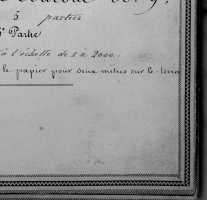 5 parties
e Partie
à l'échelle de 1 à 2000.
le papier pour deux mètres sur le terra